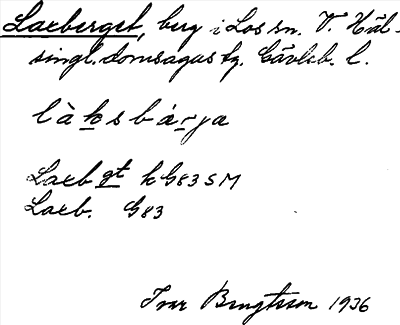 Laxberget, berg i Los sn. V. Häl-
singl. domsagas tg. Gävleb. l.
làksbárja
Laxbgt kG83SM
Laxb. G83
Ivar Bengtsson 1936